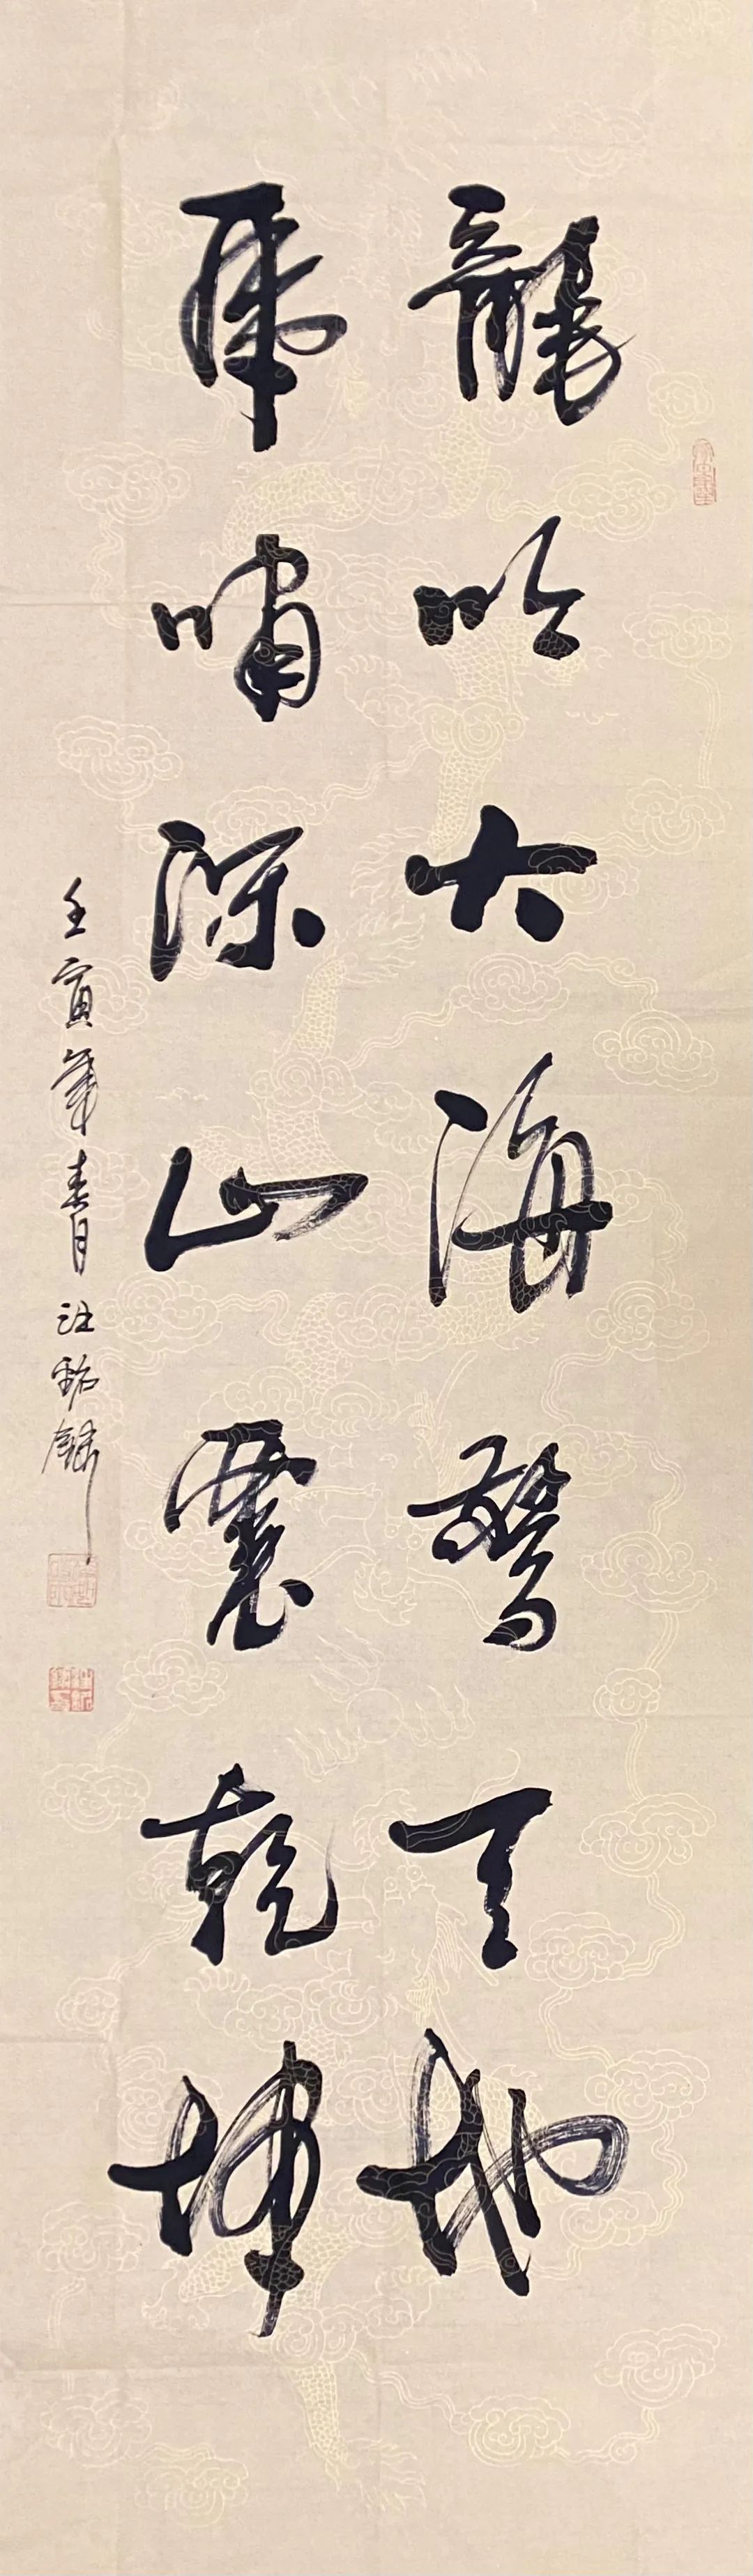 龍吟大海驚天地
虎嘯深山震乾坤
壬寅年春月汪